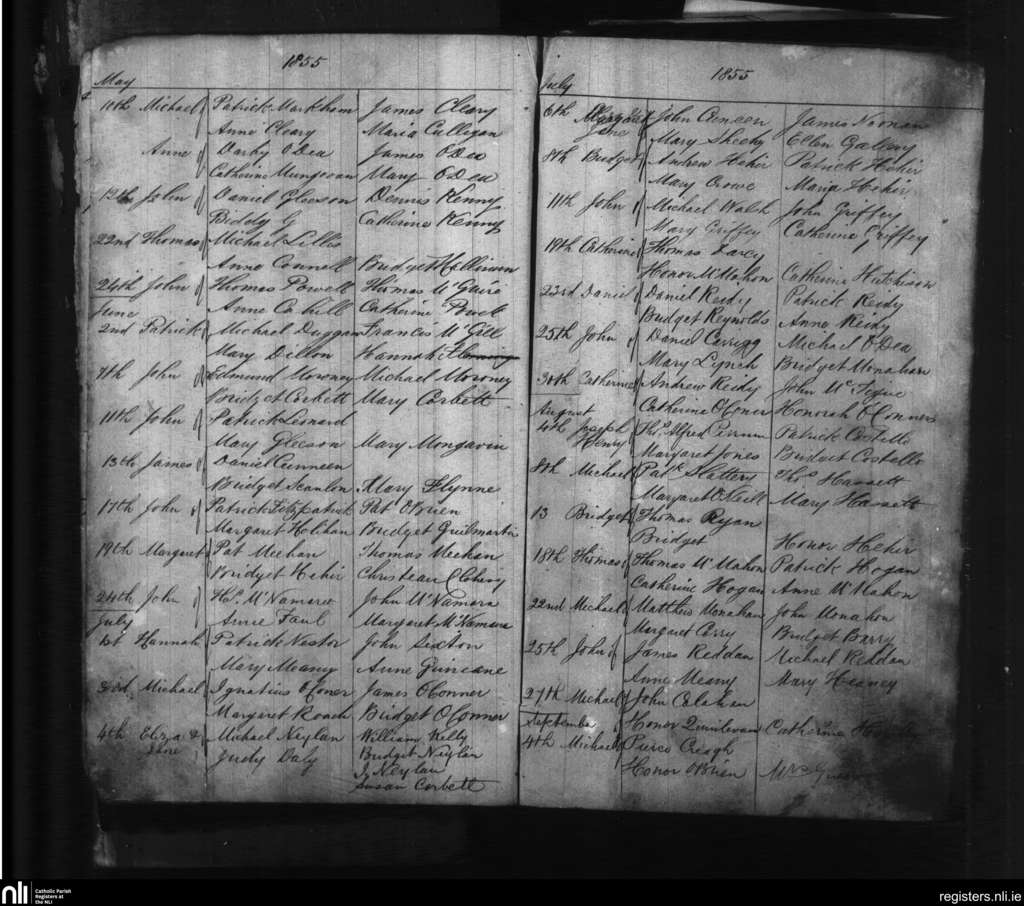 1855
May
10th Michael of Patrick Markham James Cleary
Anne Cleary Maria Culligan
Anne of Darby O Dea James O Dea
Catherine Mungovan Mary O Dea
12th John of Daniel Gleeson Dennis Kenny
Biddy G Catherine Kenny
22nd Thomas of Michael Lillis
Anne Connell Bridget Hallinan
24th John of Thomas Powell Thomas McGuire
June Anne Cahill Catherine Powell
2nd Patrick of Michael Duggan Francis McGill
Mary Dillon Hannah Fleming
7th John of Edmund Moroney Michael Moroney
Bridget Corbett Mary Corbett
11th John of Patrick Leonard
Mary Gleeson Mary Mongavin
13th James of Daniel Cunneen
Bridget Scanlon Mary Flynne
17th John of Patrick Fitzpatrick Pat OBrien
Margaret Holihan Bridget Guilmartin
19th Margaret Pat Meehan Thomas Meehan
Bridget Hehir
24th John of Ths. McNamara John McNamara
July Annie Faul Margaret McNamara
1st Hannah Patrick Nestor John Sixton
Mary Meany Anne Guineane
Michael Ignatius OConer James OConner
Margaret Roach Bridget OConner
4th Eliza & Jane Michael Neylan William Kelly
Judy Daly Bridget Neylan
J Neylan
Susan Corbett
1855
July
6th Margaret Jane of John Cuneen James Noonan
Mary Sheehy Ellen Galony
8th Bridget of Andrew Hehir Patrick Hehir
Mary Crowe Maria Hehir
11th John of Michael Walsh John Griffey
Mary Griffey Catherine Griffey
19th Catherine of Thomas Darcy
Honor McMahon Catherine Hutchison
23rd Daniel of Daniel Reidy Patrick Reidy
Bridget Reynolds Anne Reidy
25th John of Daniel Carrigg Michael O Dea
Mary Lynch Bridget Monahan
30th Catherine of Andrew Reidy John
August Catherine OConor Honorah OConners
4th Joseph Henry Ths. Alfred Patrick Costello
Margaret Jones Bridget Costello
8th Michael Patk. Slattery Ths. Hassett
Margaret ONeill Mary Hassett
13 Bridget of Thomas Ryan
Bridget Honor Hehir
18th Thomas of Thomas McMahon Patrick Hogan
Catherine Hogan Anne McMahon
22nd Michael of Matthew Monahan John Monahon
Margaret Corry Bridget Barry
25th John of James Reddan Michael Reddan
Anne Meany Mary Heaney
27th Michael of John Calahan
September Honor Quinlivan Catherine
4th Michael of Pierce Creagh
Honor OBrien Mrs
nli Catholic Parish Registers at the NLI
registers.nli.ie